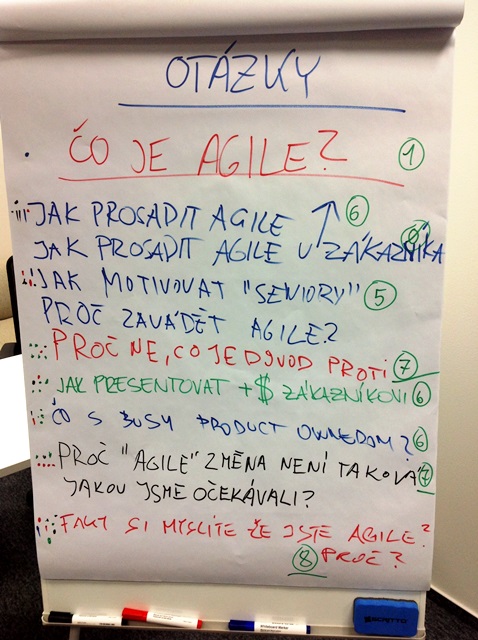 OTÁZKY
ČO JE AGILE? 1
JAK PROSADIT AGILE 6
JAK PROSADIT AGILE U ZÁKAZNÍKA
JAK MOTIVOVAT "SENIORY" 5
PROČ ZAVÁDĚT AGILE?
PROČ NE, CO JE DŮVOD PROTI 7
JAK PRESENTOVAT + $ ZÁKAZNÍKOVI 6
ČO S BUSY PRODUCT OWNEROM? 6
PROČ "AGILE" ZMĚNA NENÍ TAKOVÁ 7
JAKOU JSME OČEKÁVALI?
FAKT SI MYSLÍTE ŽE JSTE AGILE?
8 PROČ?